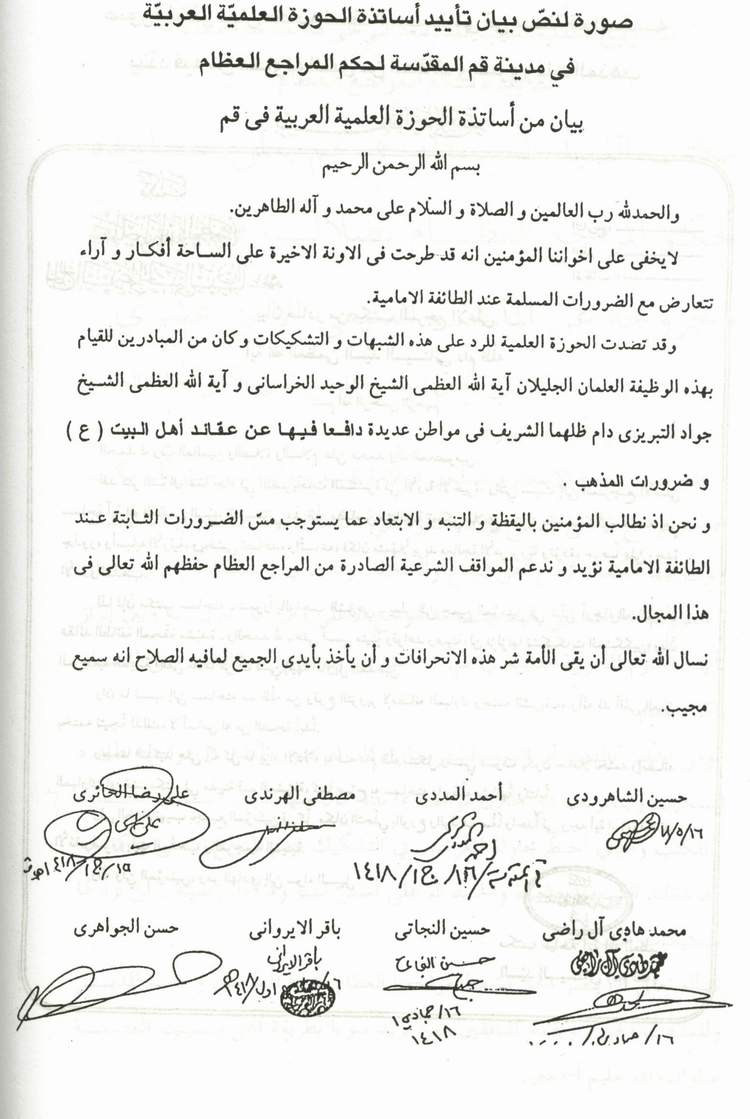 صورة لنصّ بيان تأييد أساتذة الحوزة العلميّة العربيّة
في مدينة قم المقدّسة لحكم المراجع العظام
بيان من أساتذة الحوزة العلمية العربية فى قم
بسم الله الرحمن الرحيم
والحمدلله رب العالمين و الصلاة و السلام على محمد و آله الطاهرين.
لايخفى على اخواننا المؤمنين انه قد طرحت فى الاونة الاخيرة على الساحة أفكار و آراء
تتعارض مع الضرورات المسلمة عند الطائفة الامامية.
وقد تصدت الحوزة العلمية للرد على هذه الشبهات و التشكيكات و كان من المبادرين للقيام
بهذه الوظيفة العلمان الجليلان آية الله العظمى الشيخ الوحيد الخراسانى و آية الله العظمى الشيخ
جواد التبريزى دام ظلهما الشريف فى مواطن عديدة دافعا فيها عن عقائد أهل البيت ( ع )
و ضرورات المذهب .
و نحن اذ نطالب المؤمنين باليقظة و التنبه و الابتعاد عما يستوجب مسّ الضرورات الثابتة عند
الطائفة الامامية نؤيد و ندعم المواقف الشرعية الصادرة من المراجع العظام حفظهم الله تعالى فى
هذا المجال.
نسال الله تعالى أن يقى الأمة شر هذه الانحرافات و أن يأخذ بأيدى الجميع لمافيه الصلاح انه سميع
مجيب.
حسين الشاهرودى أحمد المددى مصطفى الهرندى على رضا الحائرى
١٦/ج١/١٤١٨
محمد هادى آل راضى حسين النجاتى باقر الايروانى حسن الجواهرى
محمد هادي آل راضي حسين النجاتي باقر الايرواني
١٦/جمادي١
١٤١٨